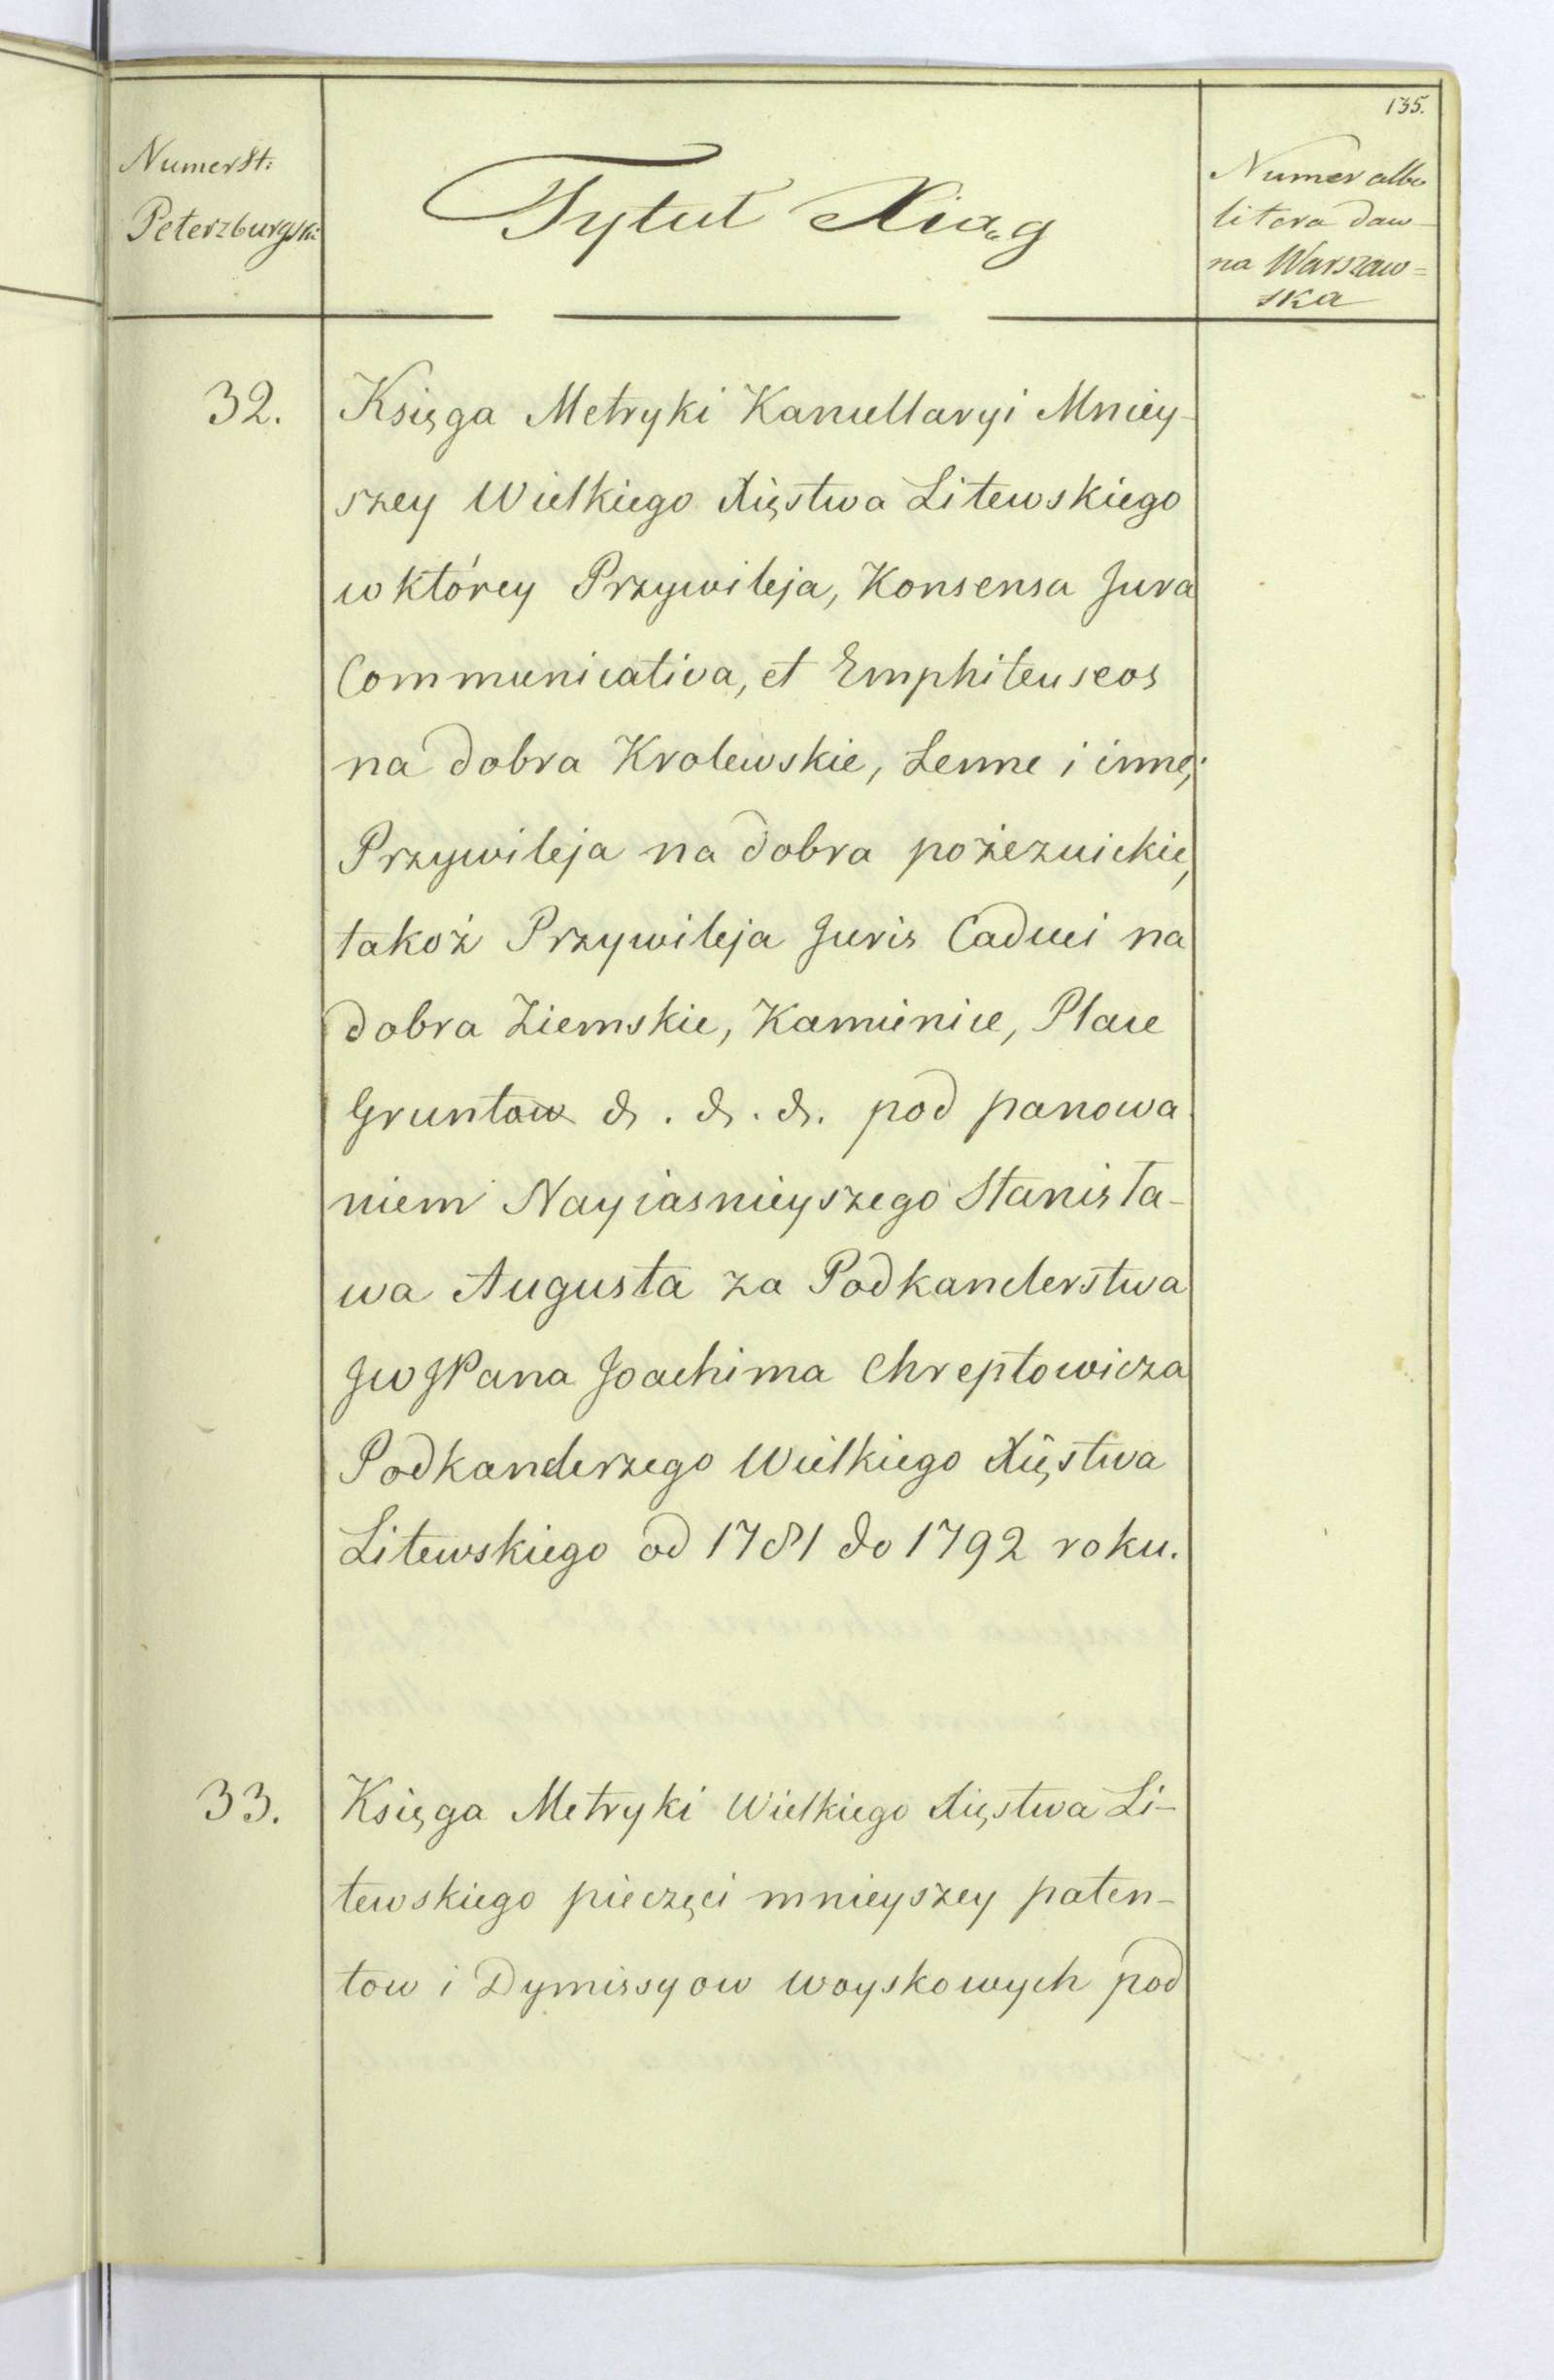 135.
Numer St:
Peterzburgski
Tytuł Xiąg
Numer albo
litera daw-
na Warszaw=
ska
32.
Księga Metryki Kancellaryi Mniey-
szey Wielkiego Xięstwa Litewskiego
w którey Przywileja, Konsensa Jura
Communicativa, et Emphiteuseos
na dobra Krolewskie, Lenne i inne;
Przywileja na dobra pojezuickie,
takoż Przywileja Juris Caduci na
dobra Ziemskie, Kamienice, Place
Gruntow &. &. &. pod panowa
niem Nayiasnieyszego Stanisła-
wa Augusta za Podkanclerstwa
JWJPana Joachima Chreptowicza
Podkanclerzego Wielkiego Xięstwa
Litewskiego od 1781 do 1792 roku.
33.
Księga Metryki Wielkiego Xięstwa Li-
tewskiego pieczęci mnieyszey paten-
tow i Dymissyow woyskowych pod